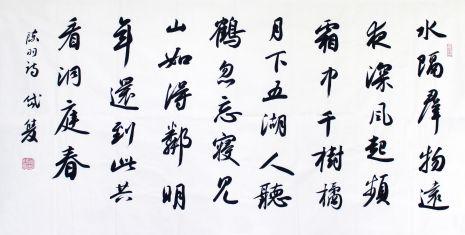 水隔羣物遠
夜深风起頻
霜中千樹橘
月下五湖人聽
鶴忽忘寢見
山如得鄰明
年還到此共
看洞庭春
陈羽詩